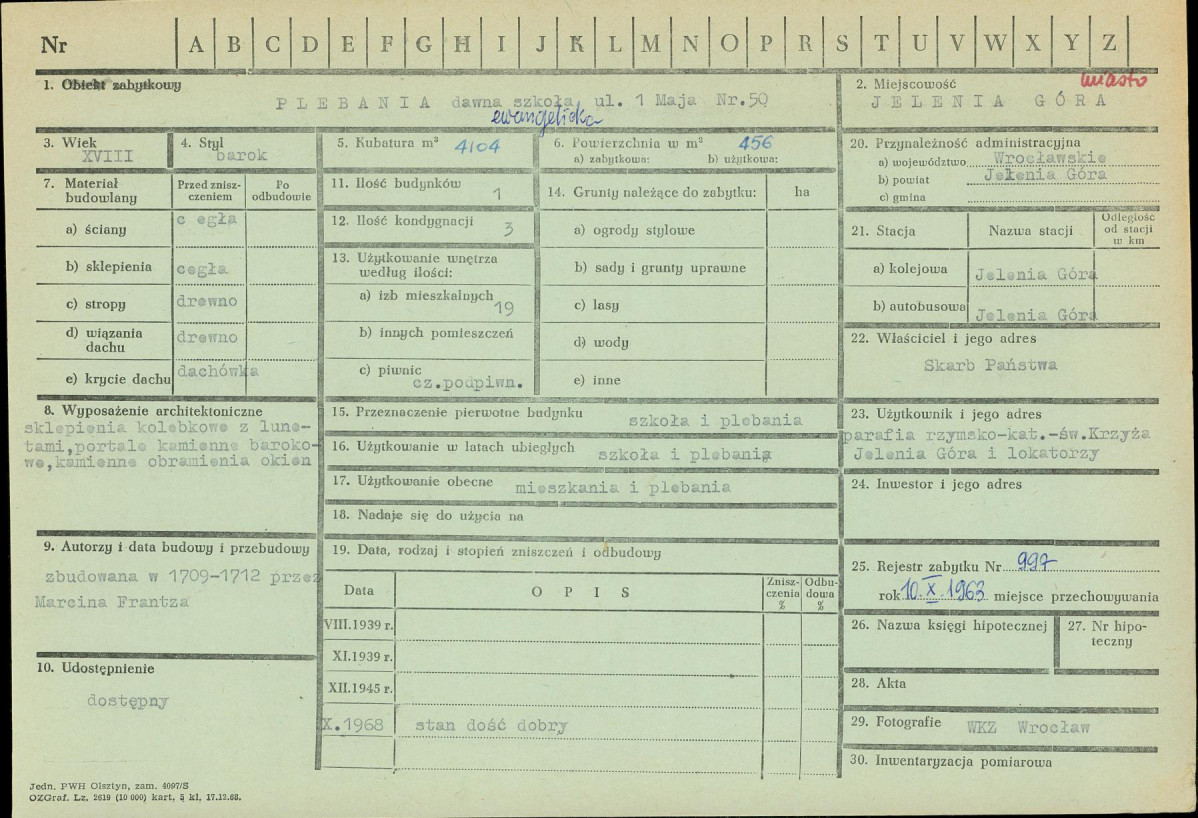 Nr A B C D E F G H I J K L M N O P R S T U V W X Y Z
1. Obiekt zabytkowy
PLEBANIA dawna szkoła, ul. 1 Maja Nr.50
ewangelicka
2. Miejscowość
miasto
JELENIA GÓRA
3. Wiek
XVIII
4. Styl
barok
5. Kubatura m³ 4104
6. Powierzchnia w m³ 456
a) zabytkowa: b) użytkowa:
7. Materiał budowlany
Przed znisz-
czeniem
Po
odbudowie
a) ściany c egła
b) sklepienia cegła
c) stropy drewno
d) wiązania
dachu
drewno
e) krycie dachu dachówka
8. Wyposażenie architektoniczne
sklepienia kolebkowe z lune-
tami,portale kamienne baroko-
we,kamienne obramienia okien
9. Autorzy i data budowy i przebudowy
zbudowana w 1709-1712 przez
Marcina Frantza
10. Udostępnienie
dostępny
11. Ilość budynków 1
12. Ilość kondygnacji 3
13. Użytkowanie wnętrza
według ilości:
a) izb mieszkalnych 19
b) innych pomieszczeń
c) piwnic
cz.podpiwn.
14. Grunty należące do zabytku: ha
a) ogrody stylowe
b) sady i grunty uprawne
c) lasy
d) wody
e) inne
15. Przeznaczenie pierwotne budynku szkoła i plebania
16. Użytkowanie w latach ubiegłych szkoła i plebania
17. Użytkowanie obecne mieszkania i plebania
18. Nadaje się do użycia na
19. Data, rodzaj i stopień zniszczeń i odbudowy
Data O P I S
Znisz-
czenia
%
Odbu-
dowa
%
VIII.1939 r.
XI.1939 r.
XII.1945 r.
X.1968 stan dość dobry
20. Przynależność administracyjna
a) województwo Wrocławskie
b) powiat Jelenia Góra
c) gmina
21. Stacja Nazwa stacji
Odległość
od stacji
w km
a) kolejowa Jelenia Góra
b) autobusowa Jelenia Góra
22. Właściciel i jego adres
Skarb Państwa
23. Użytkownik i jego adres
parafia rzymsko-kat.-św.Krzyża
Jelenia Góra i lokatorzy
24. Inwestor i jego adres
25. Rejestr zabytku Nr 997
rok 10.X.1963 miejsce przechowywania
26. Nazwa księgi hipotecznej
27. Nr hipo-
teczny
28. Akta
29. Fotografie WKZ Wrocław
30. Inwentaryzacja pomiarowa
Jedn. PWH Olsztyn, zam. 4097/S
OZGraf. Lz. 2619 (10 000) kart. 5 kl. 17.12.68.